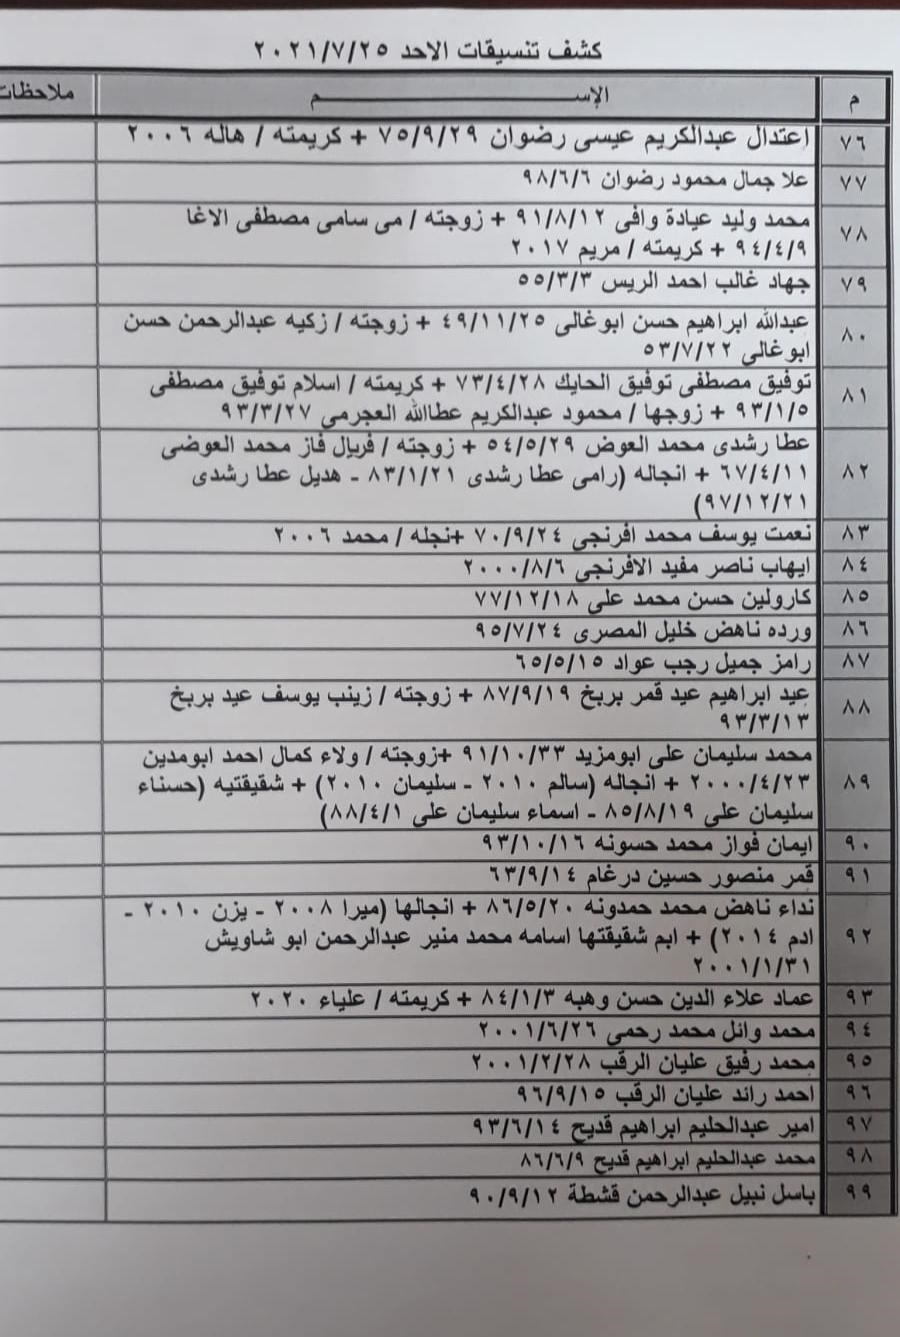 كشف تنسيقات الاحد ٢٠٢١/٧/٢٥
م الإســـــــم ملاحظات
٧٦ اعتدال عبدالكريم عيسى رضوان ٧٥/٩/٢٩ + كريمته / هاله ٢٠٠٦
٧٧ علا جمال محمود رضوان ٩٨/٦/٦
٧٨ محمد وليد عيادة وافى ٩١/٨/١٢ + زوجته / مى سامى مصطفى الاغا
٩٤/٤/٩ + كريمته / مريم ٢٠١٧
٧٩ جهاد غالب احمد الريس ٥٥/٣/٣
٨٠ عبدالله ابراهيم حسن ابوغالى ٤٩/١١/٢٥ + زوجته / زكيه عبدالرحمن حسن
ابوغالى ٥٣/٧/٢٢
٨١ توفيق مصطفى توفيق الحايك ٧٣/٤/٢٨ + كريمته / اسلام توفيق مصطفى
٩٣/١/٥ + زوجها / محمود عبدالكريم عطاالله العجرمي ٩٣/٣/٢٧
٨٢ عطا رشدى محمد العوض ٥٤/٥/٢٩ + زوجته / فريال فاز محمد العوضى
٦٧/٤/١١ + انجاله (رامى عطا رشدى ٨٣/١/٢١ - هديل عطا رشدى
٩٧/١٢/٢١)
٨٣ نعمت يوسف محمد افرنجي ٧٠/٩/٢٤ +نجله / محمد ٢٠٠٦
٨٤ ايهاب ناصر مفيد الافرنجى ٢٠٠٠/٨/٦
٨٥ كارولين حسن محمد على ٧٧/١٢/١٨
٨٦ ورده ناهض خليل المصرى ٩٥/٧/٢٤
٨٧ رامز جميل رجب عواد ٦٥/٥/١٥
٨٨ عيد ابراهيم عيد قمر بربخ ٨٧/٩/١٩ + زوجته / زينب يوسف عيد بربخ
٩٣/٣/١٣
٨٩ محمد سليمان على ابومزيد ٩١/١٠/٣٣ +زوجته / ولاء كمال احمد ابومدين
٢٠٠٠/٤/٢٣ + انجاله (سالم ٢٠١٠ - سليمان ٢٠١٠) + شقيقتيه (حسناء
سليمان على ٨٥/٨/١٩ - اسماء سليمان على ٨٨/٤/١)
٩٠ ايمان فواز محمد حسونه ٩٣/١٠/١٦
٩١ قمر منصور حسين درغام ٦٣/٩/١٤
٩٢ نداء ناهض محمد حمدونه ٨٦/٥/٢٠ + انجالها (ميرا ٢٠٠٨ - يزن ٢٠١٠ -
ادم ٢٠١٤) + ابم شقيقتها اسامه محمد منير عبدالرحمن ابو شاويش
٢٠٠١/١/٣١
٩٣ عماد علاء الدين حسن وهبه ٨٤/١/٣ + كريمته / علياء ٢٠٢٠
٩٤ محمد وائل محمد رحمى ٢٠٠١/٦/٢٦
٩٥ محمد رفيق عليان الرقب ٢٠٠١/٢/٢٨
٩٦ احمد رائد عليان الرقب ٩٦/٩/١٥
٩٧ امير عبدالحليم ابراهيم قديح ٩٣/٦/١٤
٩٨ محمد عبدالحليم ابراهيم قديح ٨٦/٦/٩
٩٩ باسل نبيل عبدالرحمن قشطة ٩٠/٩/١٢